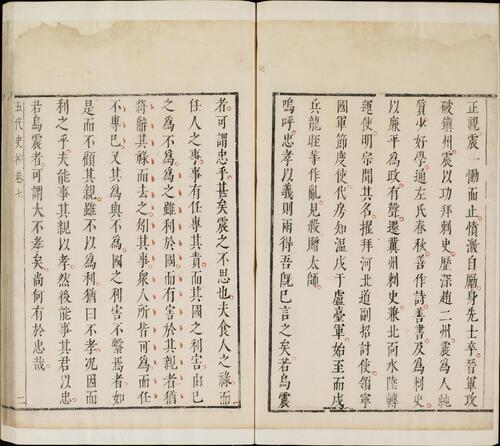 正視震一慟而止憤激自勵身先士卒晉軍攻
破鎮州震以功拜刺史歷深趙二州震為人純
質少好學通左氏春秋善作詩善書及為刺史
以廉平為政有聲遷冀州刺史兼北面水陸轉
運使明宗聞其名擢拜河北道副招討使領寧
國軍節度使代房知溫戍于盧臺軍始至而戍
兵龍晊等作亂見殺贈太師
嗚呼忠孝以義則兩得吾既已言之矣若烏震
者可謂忠乎甚矣震之不思也夫食人之祿而
任人之事事有任專其責而其國之利害由己
之為不為為之雖利於國而有害於其親者猶
將辭其祿而去之矧其事衆人所皆可為而任
不專己又其為與不為國之利害不繫焉者如
是而不顧其親雖不以為利猶曰不孝況因而
利之乎夫能事其親以孝然後能事其君以忠
若烏震者可謂大不孝矣尚何有於忠哉
五代史抄卷七 二